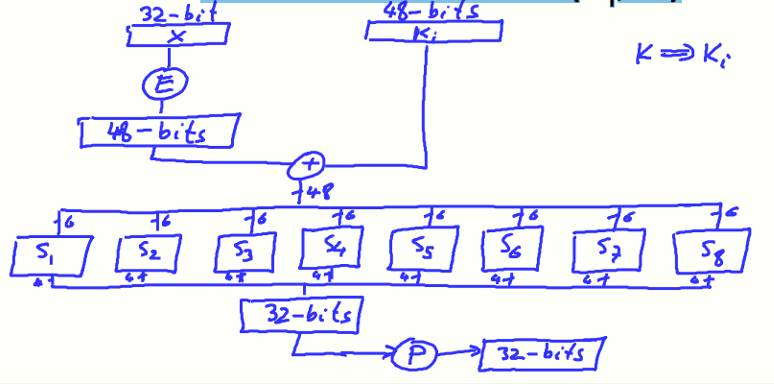 32-bit 48-bits
X Ki
K ⟹ Ki
E
48-bits
+
48
6 6 6 6 6 6 6 6
S1 S2 S3 S4 S5 S6 S7 S8
4 4 4 4 4 4 4 4
32-bits
P 32-bits